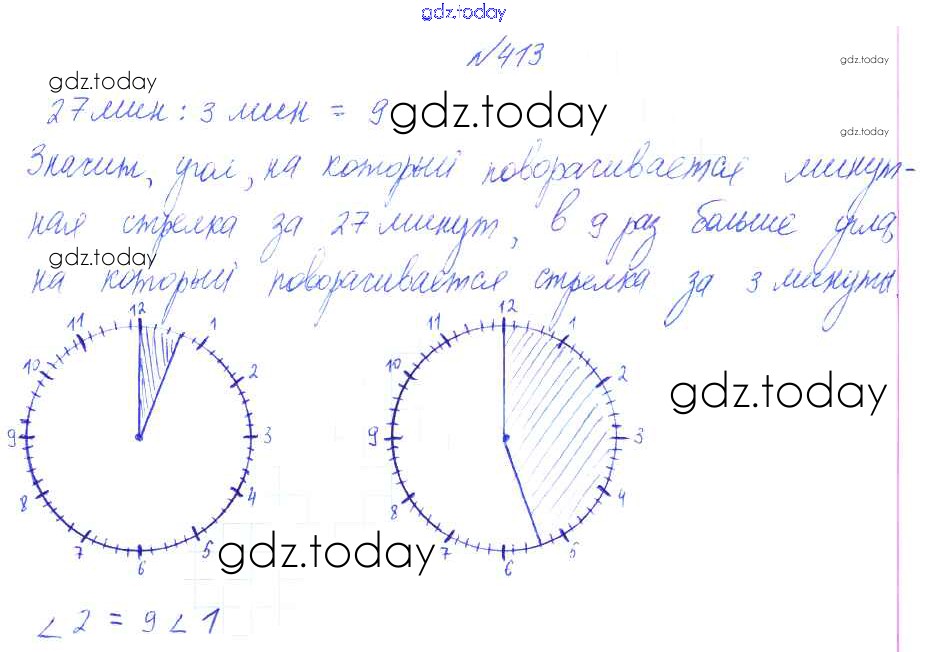 gdz.today
№413
gdz.today
gdz.today
27 мин : 3 мин = 9
gdz.today
gdz.today
Значит, угол, на который поворачивается минут-
ная стрелка за 27 минут, в 9 раз больше угла,
gdz.today
на который поворачивается стрелка за 3 минуты.
12 1 2 3 4 5 6 7 8 9 10 11
12 1 2 3 4 5 6 7 8 9 10 11
gdz.today
gdz.today
∠2 = 9∠1